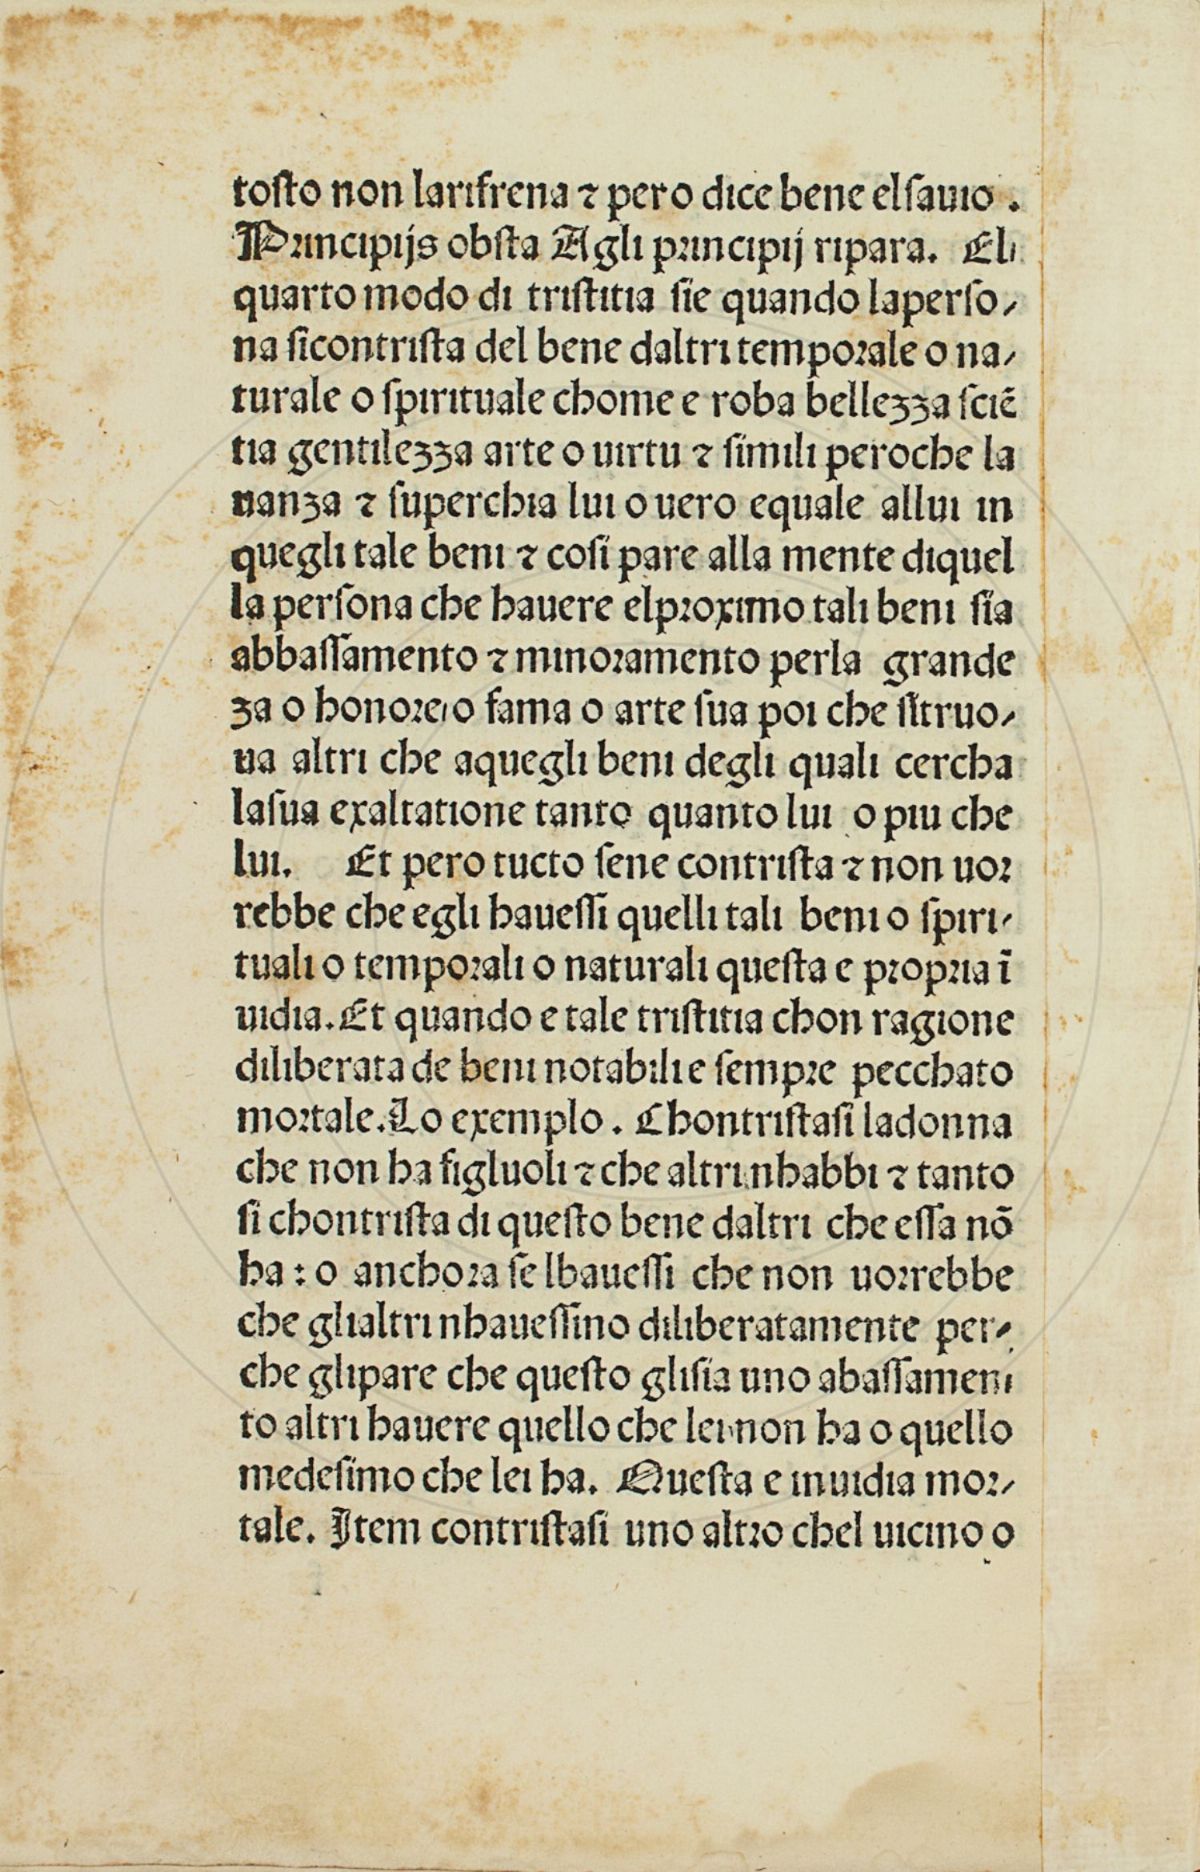 tosto non larifrena ⁊ pero dice bene elsauio .
Principijs obsta Agli principij ripara. El
quarto modo di tristitia sie quando laperso⸗
na sicontrista del bene daltri temporale o na⸗
turale o spirituale chome e roba bellezza sciē
tia gentilezza arte o uirtu ⁊ simili peroche la
uanza ⁊ superchia lui o uero equale allui in
quegli tale beni ⁊ cosi pare alla mente diquel
la persona che hauere elproximo tali beni sia
abbassamento ⁊ minoramento perla grande
za o honore o fama o arte sua poi che sitruo⸗
ua altri che aquegli beni degli quali cercha
lasua exaltatione tanto quanto lui o piu che
lui. Et pero tucto sene contrista ⁊ non uor
rebbe che egli hauessi quelli tali beni o spiri⸗
tuali o temporali o naturali questa e propria ī
uidia. Et quando e tale tristitia chon ragione
diliberata de beni notabili e sempre pecchato
mortale. Lo exemplo . Chontristasi ladonna
che non ha figluoli ⁊ che altri nhabbi ⁊ tanto
si chontrista di questo bene daltri che essa nō
ha : o anchora se lhauessi che non uorrebbe
che glialtri nhauessino diliberatamente per⸗
che glipare che questo glisia uno abassamen
to altri hauere quello che lei non ha o quello
medesimo che lei ha. Questa e inuidia mor⸗
tale. Item contristasi uno altro chel uicino o